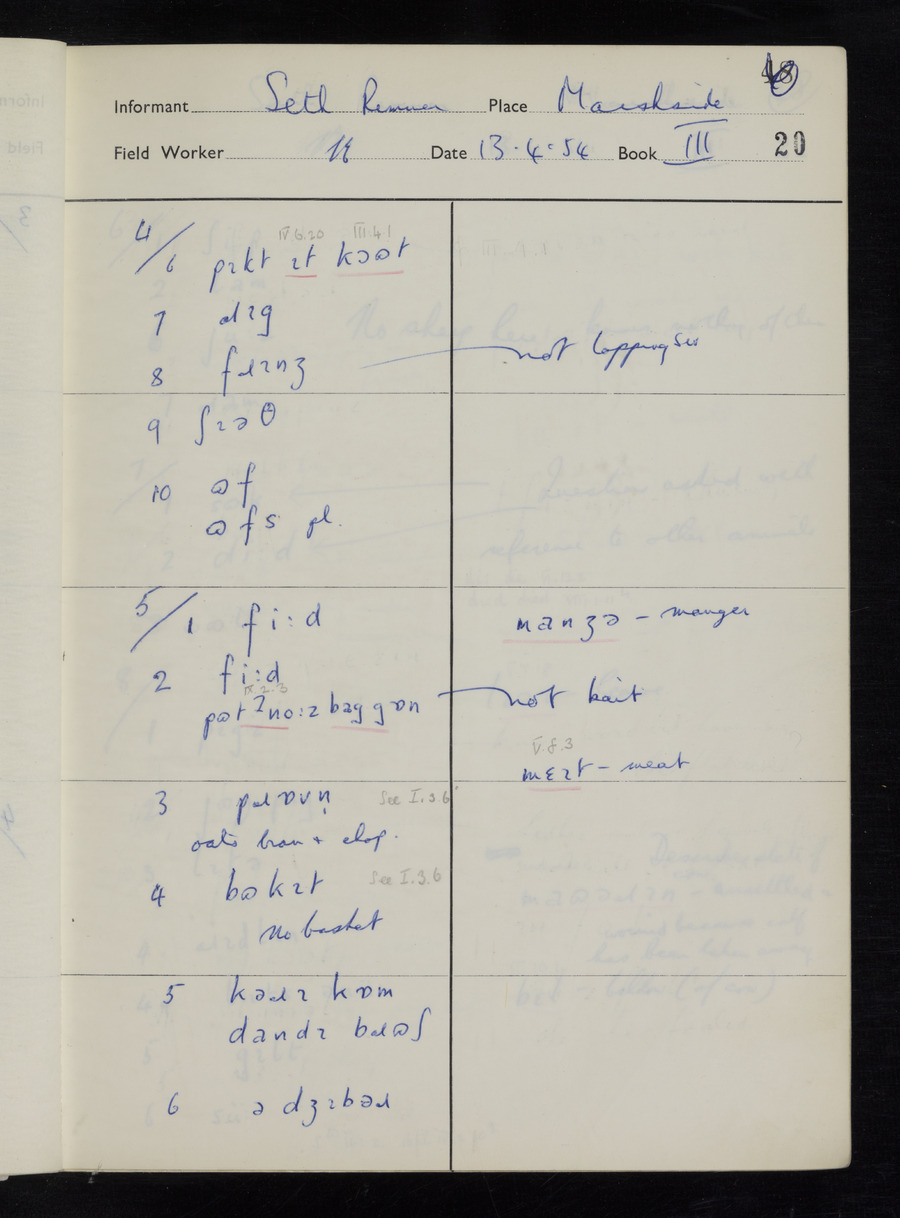 48
Informant Seth Rimmer Place Marshside
Field Worker H Date 13.4.54 Book III 20
4/ IV.6.20 III.4.1
6 pɪkt ɪt kɔʊt
7 dɪg
8 fɹɪnʒ not lappings
9 ʃɪəθ
10 ʊf
ʊfs pl.
5/1 fi:d manʒə – manger
2 fi:d
IX.2.3
pʊt no:ɪ bag gɒn not bait
V.8.3
mɛɪt – meat
3 pɹɒvn̩ See I.3.6
oats bran + chop.
4 bʊkɪt See I.3.6
No basket
5 kəɹɪ kɒm
dandɪ bɹʊʃ
6 ə dʒɪbəɹ